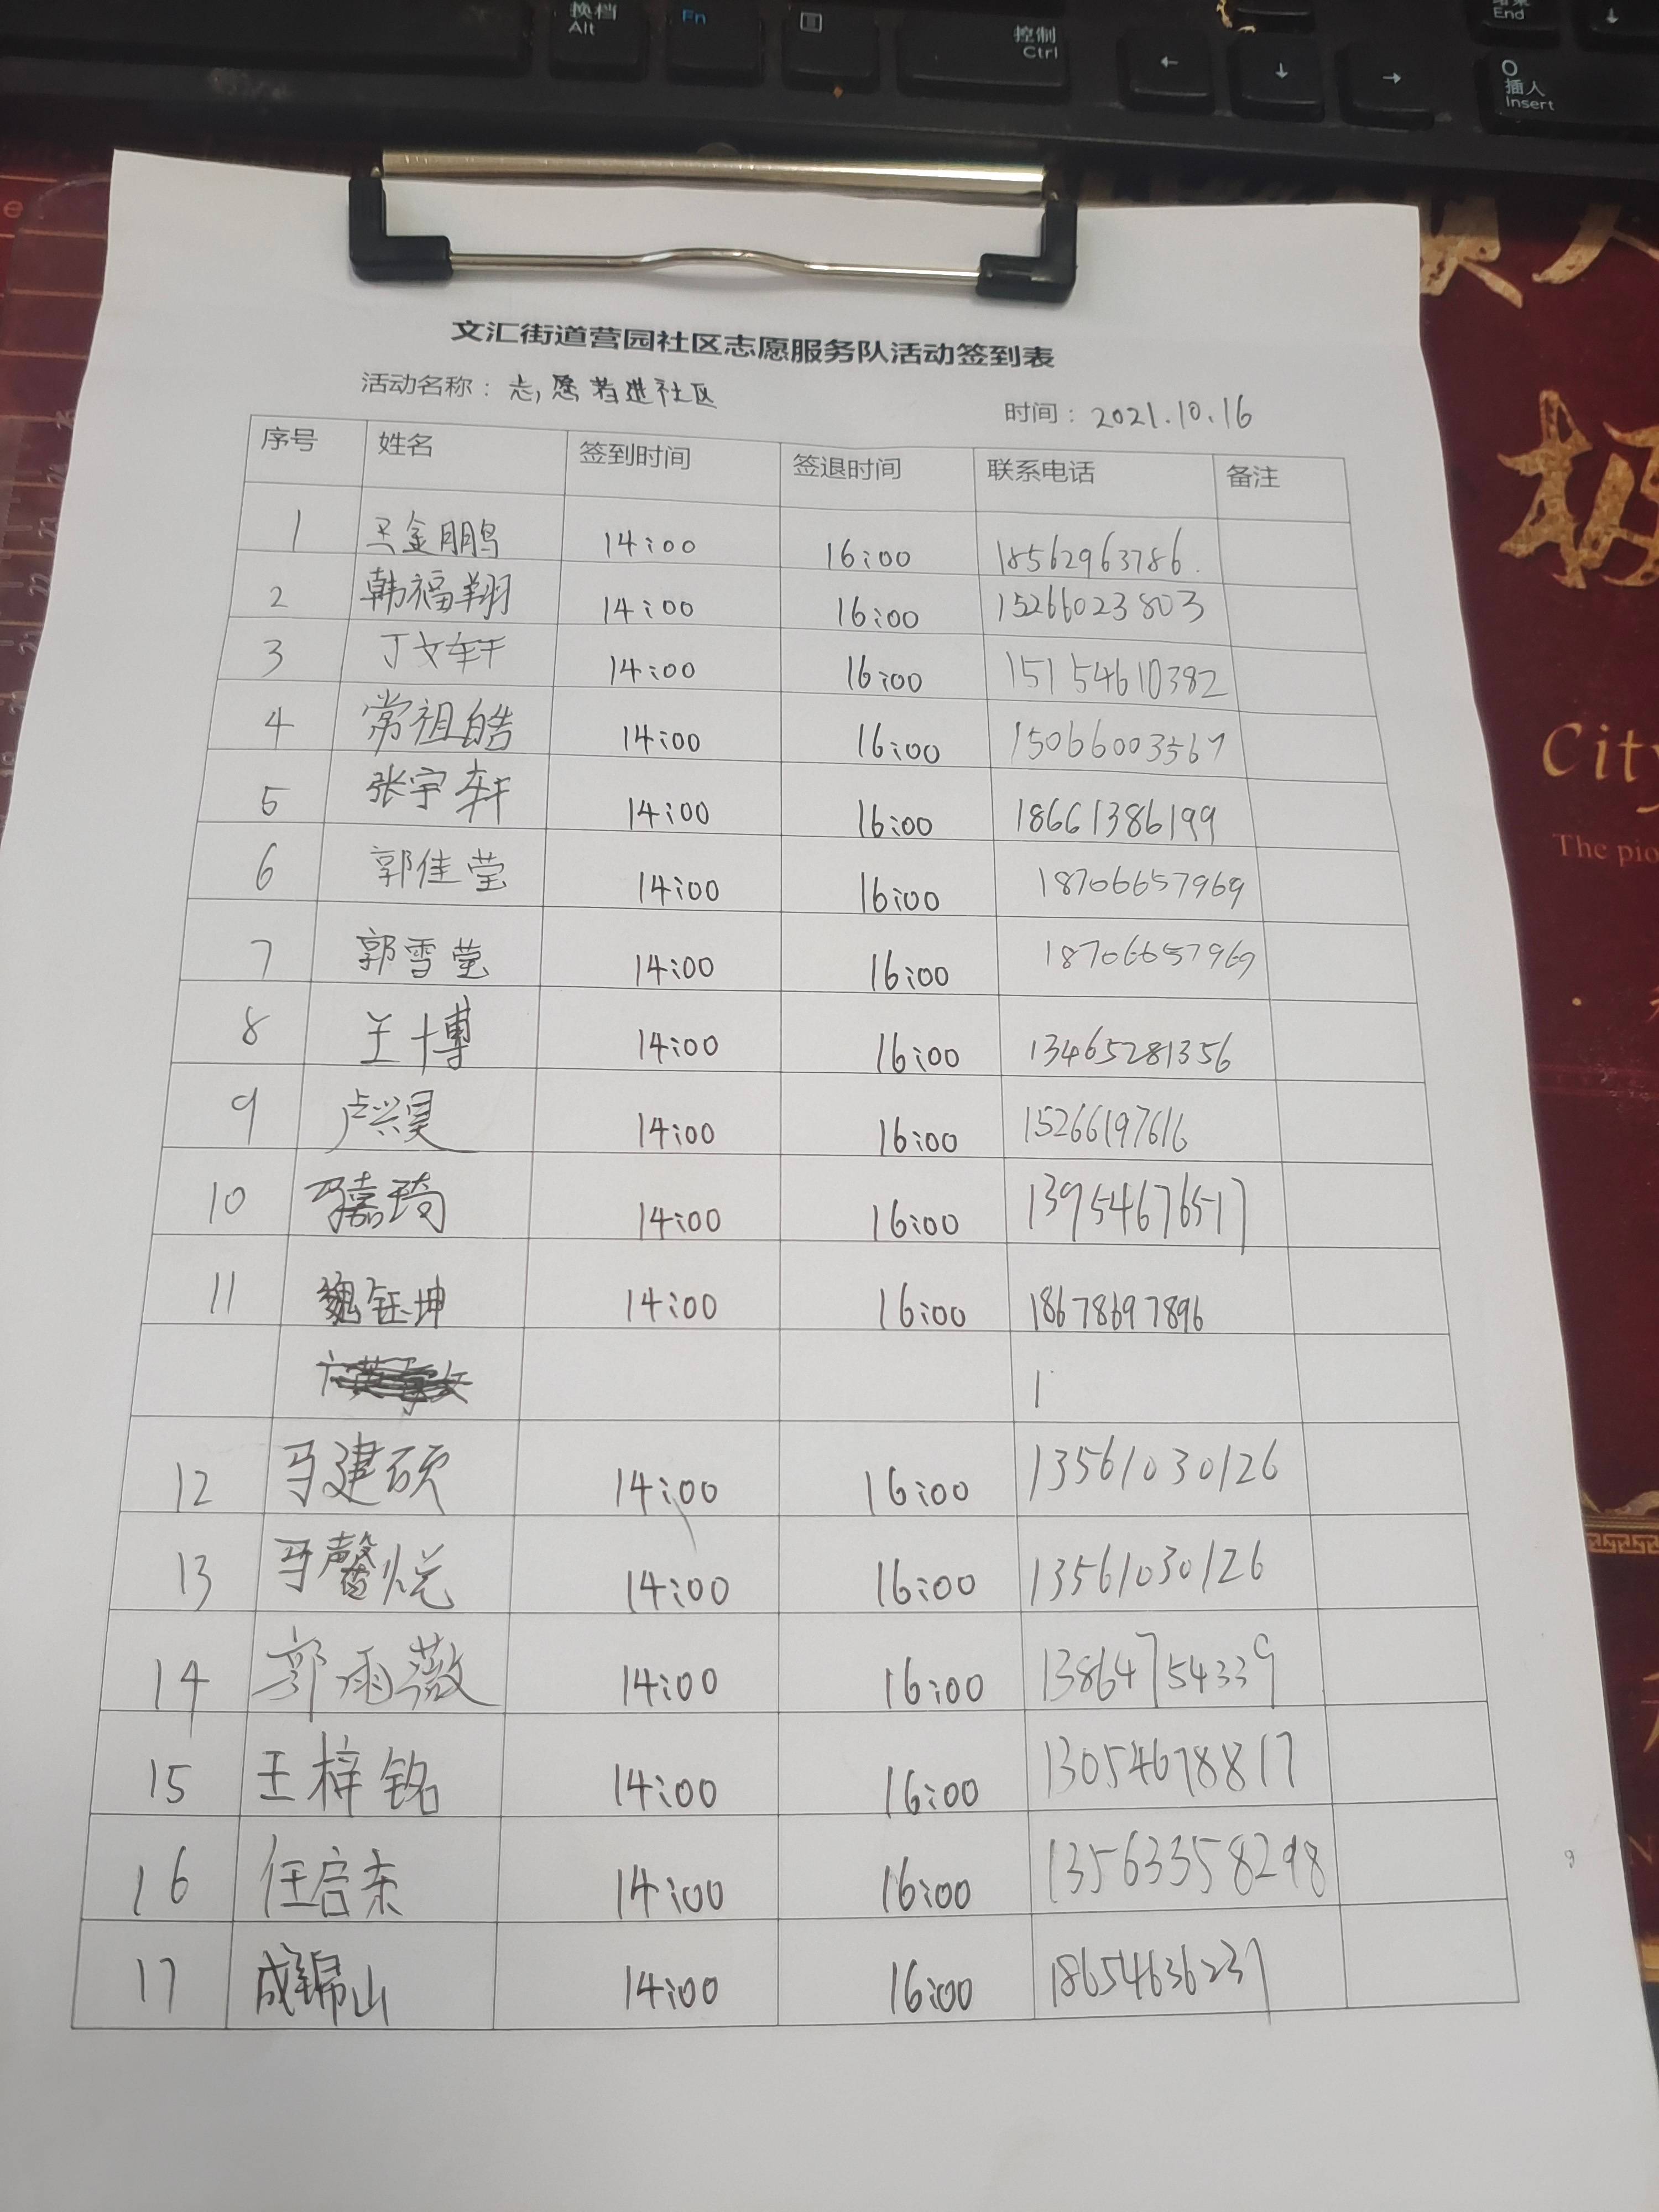 换档
Alt
Fn
控制
Ctrl
End
←
↓
→
O
插入
Insert
↓
文汇街道营园社区志愿服务队活动签到表
活动名称：志愿者进社区
时间：2021.10.16
序号 姓名 签到时间 签退时间 联系电话 备注
1 王金鹏 14:00 16:00 18562963786.
2 韩福翔 14:00 16:00 15266023803
3 丁文轩 14:00 16:00 15154610382
4 常祖皓 14:00 16:00 15066003567
5 张宇轩 14:00 16:00 18661386199
6 郭佳莹 14:00 16:00 18706657969
7 郭雪莹 14:00 16:00 18706657969
8 王博 14:00 16:00 13465281356
9 卢兴昊 14:00 16:00 15266197616
10 嘉琦 14:00 16:00 13954676517
11 魏钰坤 14:00 16:00 18678697896
1
12 马建硕 14:00 16:00 13561030126
13 马馨悦 14:00 16:00 13561030126
14 郭雨薇 14:00 16:00 13864754339
15 王梓铭 14:00 16:00 13054678817
16 任启东 14:00 16:00 13563358298
17 成锦山 14:00 16:00 18654636237
City
The pio